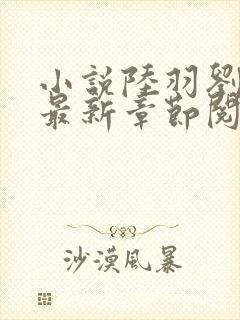 小説陸羽劉
最新章節閱
沙漠風暴